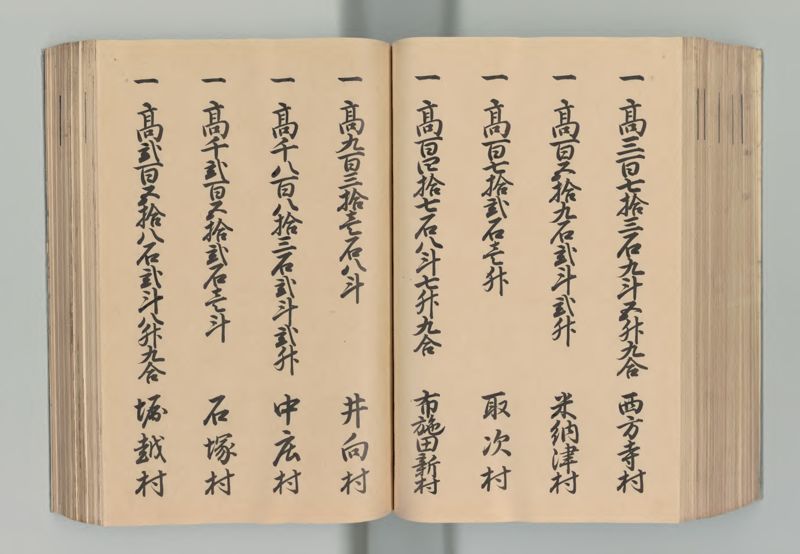 一 高三百七拾三石九斗五升九合 西方寺村
一 高百五拾九石弐斗弐升 米納津村
一 高百七拾弐石壱升 取次村
一 高百四拾七石八斗七升九合 布施田新村
一 高九百三拾壱石八斗 井向村
一 高千八百八拾三石弐斗弐升 中庄村
一 高千弐百五拾弐石壱斗 石塚村
一 高弐百五拾八石弐斗八升九合 堀越村